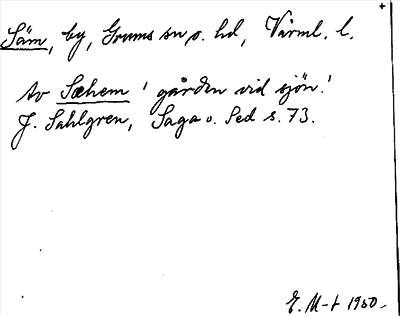 Säm, by, Grums sn o. hd, Värml. l.
Av Sæhem 'gården vid sjön'.
J. Sahlgren, Saga o. Sed s. 73.
E. M-t 1950.